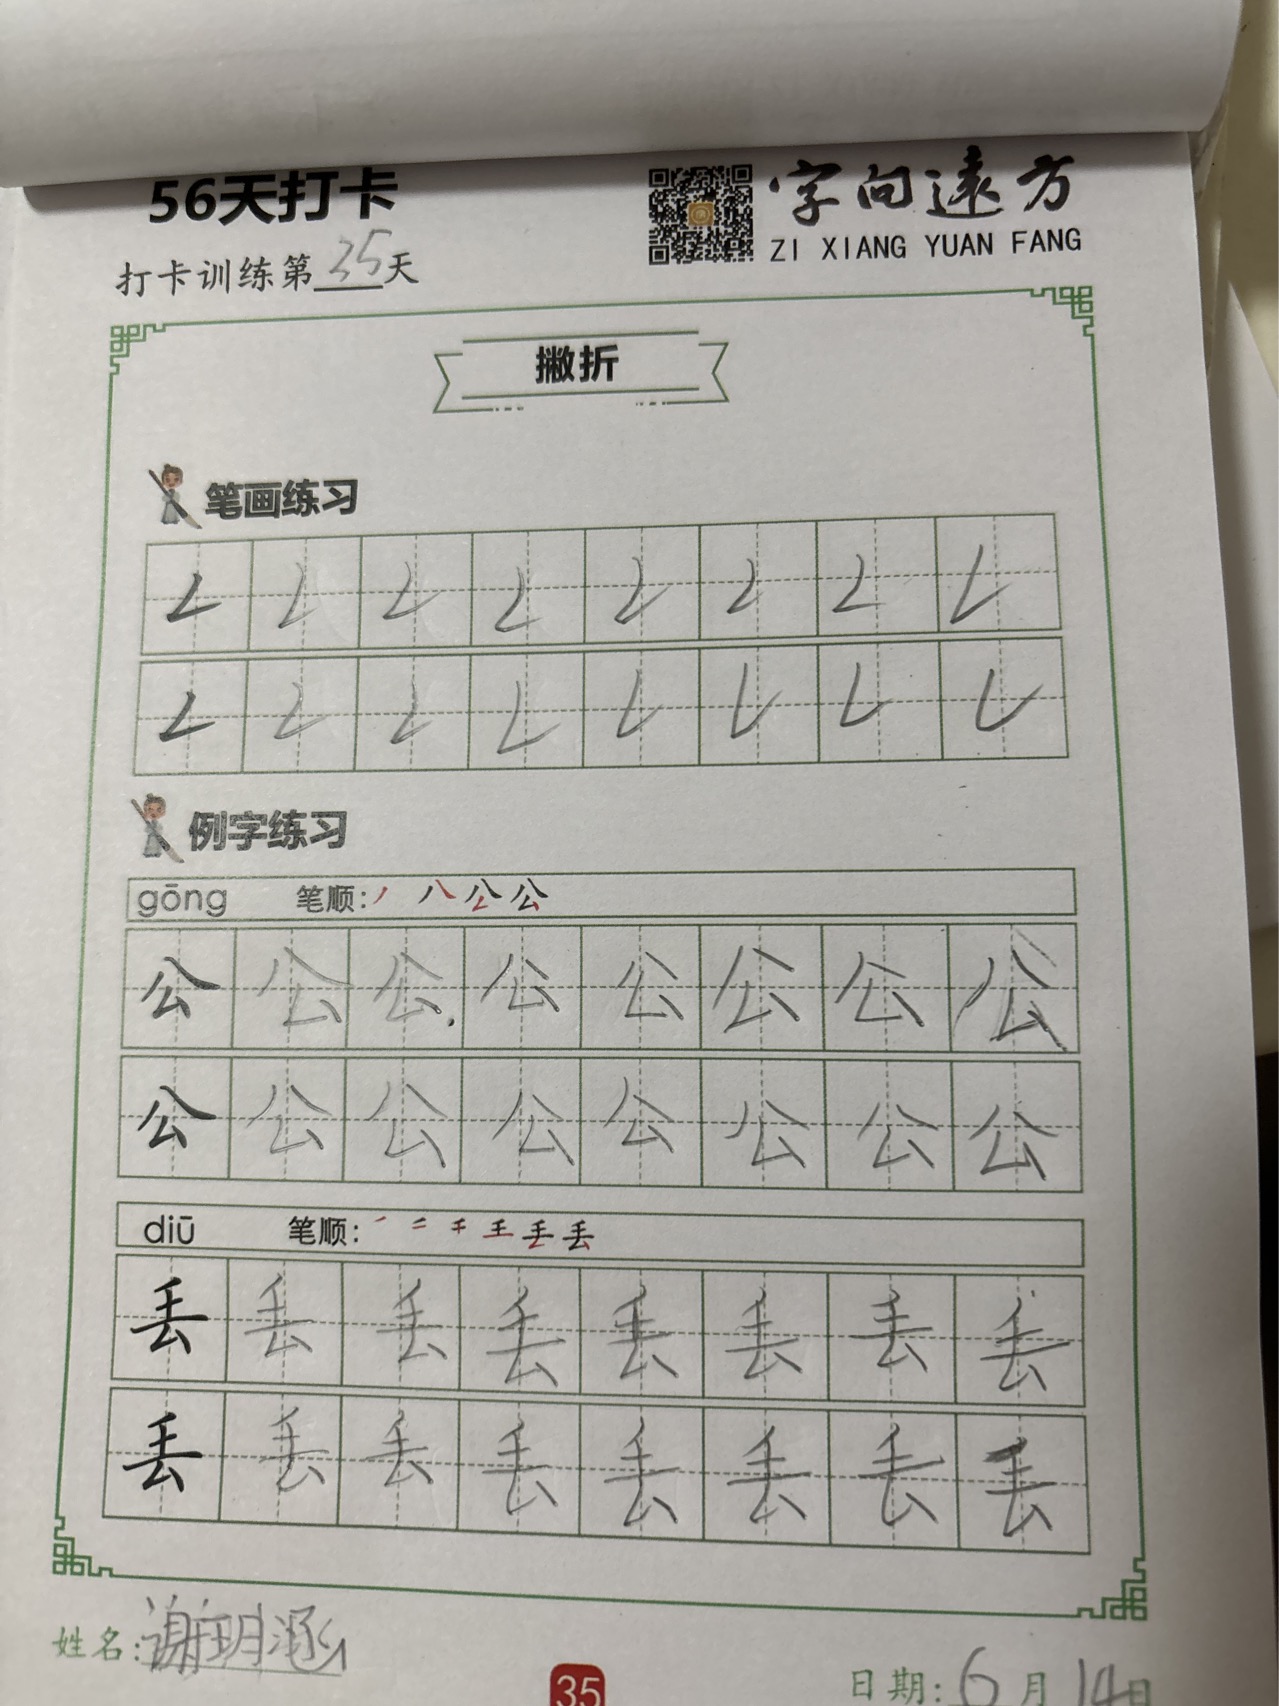 56天打卡
字向遠方
ZI XIANG YUAN FANG
打卡训练第35天
撇折
笔画练习
𠃋 𠃋 𠃋 𠃋 𠃋 𠃋 𠃋 𠃋
𠃋 𠃋 𠃋 𠃋 𠃋 𠃋 𠃋 𠃋
例字练习
gōng 笔顺: 丿 八 公 公
公 公 公 公 公 公 公 公
公 公 公 公 公 公 公 公
diū 笔顺: 一 二 千 王 丢 丢
丢 丢 丢 丢 丢 丢 丢 丢
丢 丢 丢 丢 丢 丢 丢 丢
姓名:谢玥涵
35
日期:6月14日